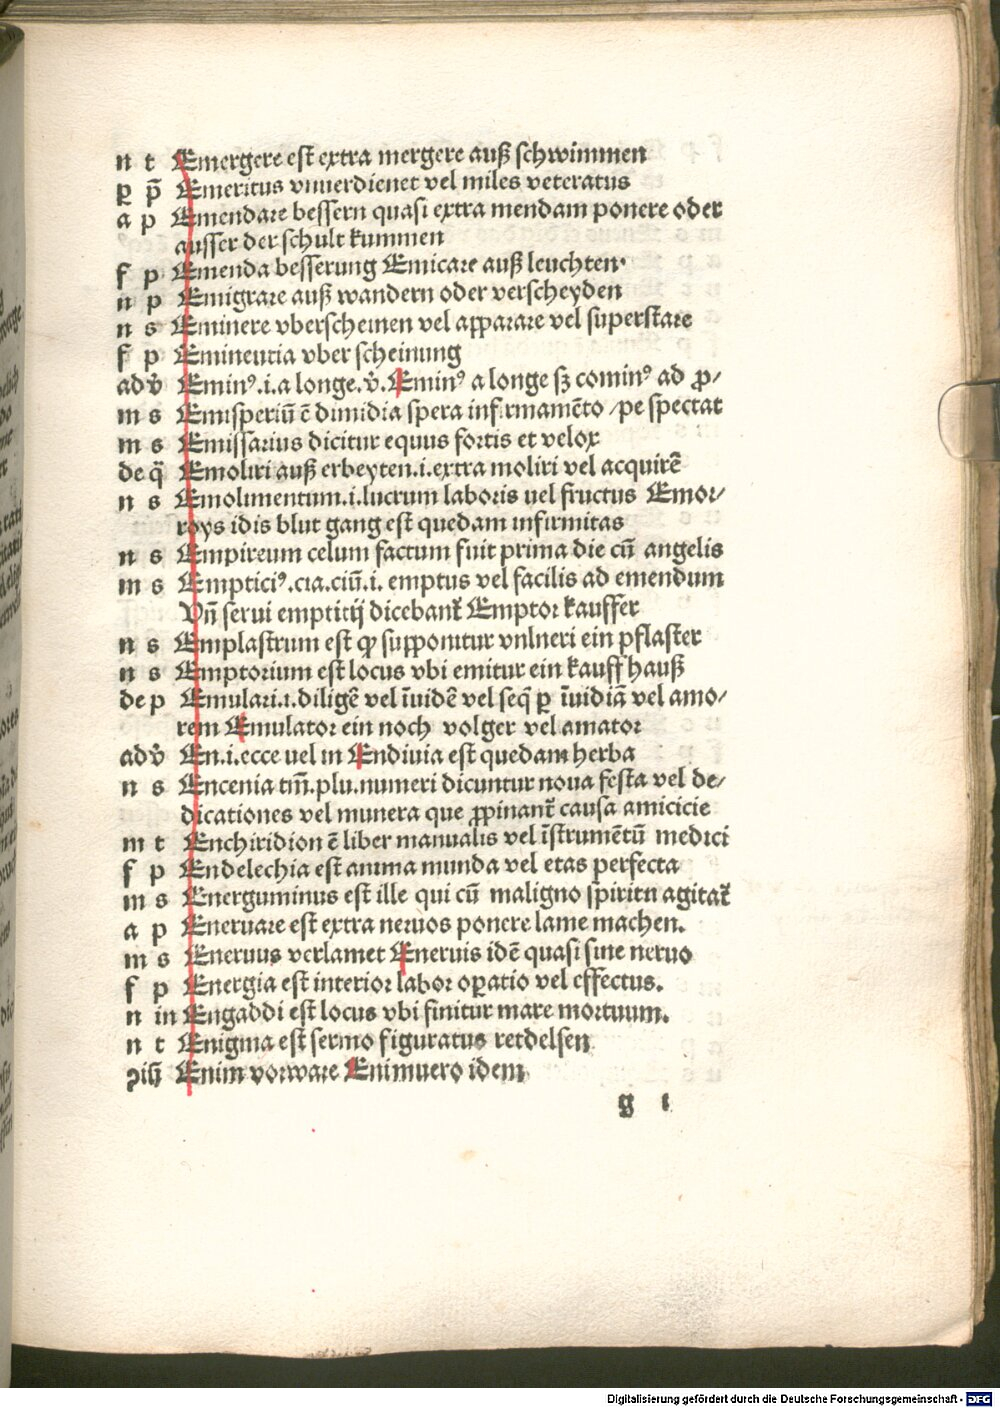 n t Emergere est extra mergere auß schwimmen
ꝑ p̄ Emeritus vnuerdienet vel miles veteratus
a p Emendare bessern quasi extra mendam ponere oder
ausser der schult kummen
f p Emenda besserung Emicare auß leuchten·
n p Emigrare auß wandern oder verscheyden
n s Eminere vberscheinen vel apparare vel superstare
f p Eminentia vber scheinung
adv̄ Eminꝰ.i.a longe.v̄.Eminꝰ a longe sꝫ cominꝰ ad ꝓ⸗
m s Emisperiū ē dimidia spera infirmamēto /pe spectat
m s Emissarius dicitur equus fortis et velox
de q̄ Emoliri auß erbeyten.i.extra moliri vel acquirē
n s Emolimentum.i.lucrum laboris uel fructus Emor⸗
roys idis blut gang est quedam infirmitas
n s Empireum celum factum fuit prima die cū angelis
m s Empticiꝰ.cia.ciū.i. emptus vel facilis ad emendum
Vn̄ serui emptitij dicebant᷑ Emptor kauffer
n s Emplastrum est qꝫ supponitur vnlneri ein pflaster
n s Emptorium est locus vbi emitur ein kauff hauß
de p Emulari.i.diligē vel īuidē vel seq̄ ꝑ īuidiā vel amo⸗
rem Emulator ein noch volger vel amator
adv̄ En.i.ecce uel in Endiuia est quedam herba
n s Encenia tm̄.plu.numeri dicuntur noua festa vel de⸗
dicationes vel munera que ꝓpinant᷑ causa amicicie
m t Enchiridion ē liber manualis vel īstrumētū medici
f p Endelechia est anima munda vel etas perfecta
m s Energuminus est ille qui cū maligno spiritu agitat᷑
a p Eneruare est extra neruos ponere lame machen.
m s Eneruus verlamet Eneruis idē quasi sine neruo
f p Energia est interior labor oꝑatio vel effectus.
n in Engaddi est locus vbi finitur mare mortuum.
n t Enigma est sermo figuratus retdelsen
Enim vorware Enimuero idem
g i
Digitalisierung gefördert durch die Deutsche Forschungsgemeinschaft - DFG